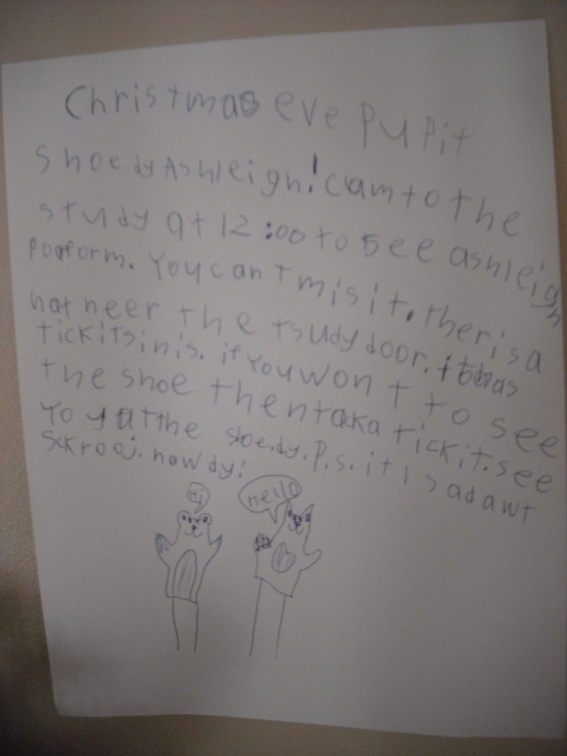 Christmas eve pupit
shoe dy Ashleigh! cam to the
study at 12:00 to see ashleigh
poorform. You can t mis it. ther is a
hat neer the tsudy door. it has
tickits in is. if you won t to see
the shoe then taka tickit. see
yo yatthe shoe.dy. P.s. it is adawt
Sckrooj. now dy!
Hi
Hello